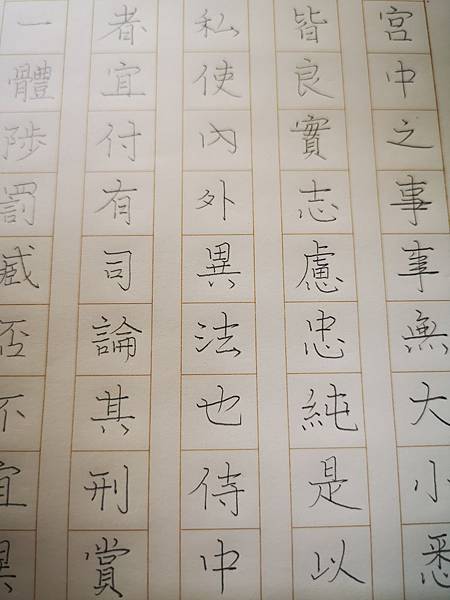 宮中之事事無大小悉
皆良實志慮忠純是以
私使內外異法也侍中
者宜付有司論其刑賞
一體陟罰臧否不宜異